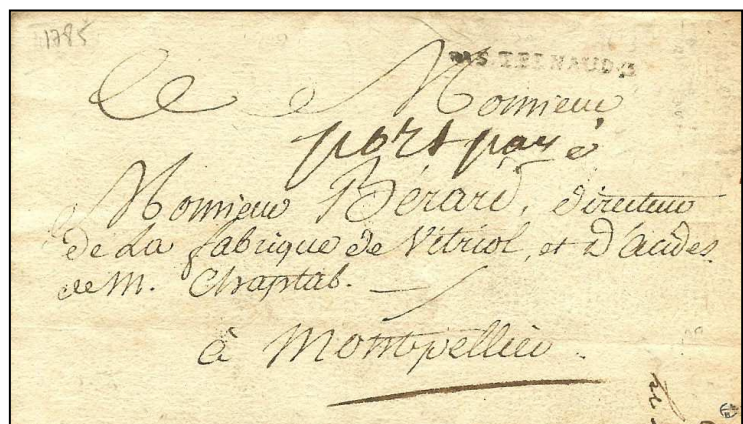 1785
A Monsieur
port payé
Monsieur Bérard, directeur
de La fabrique de Vitriol, et D'acides
de M. Chaptal.
à Montpellier